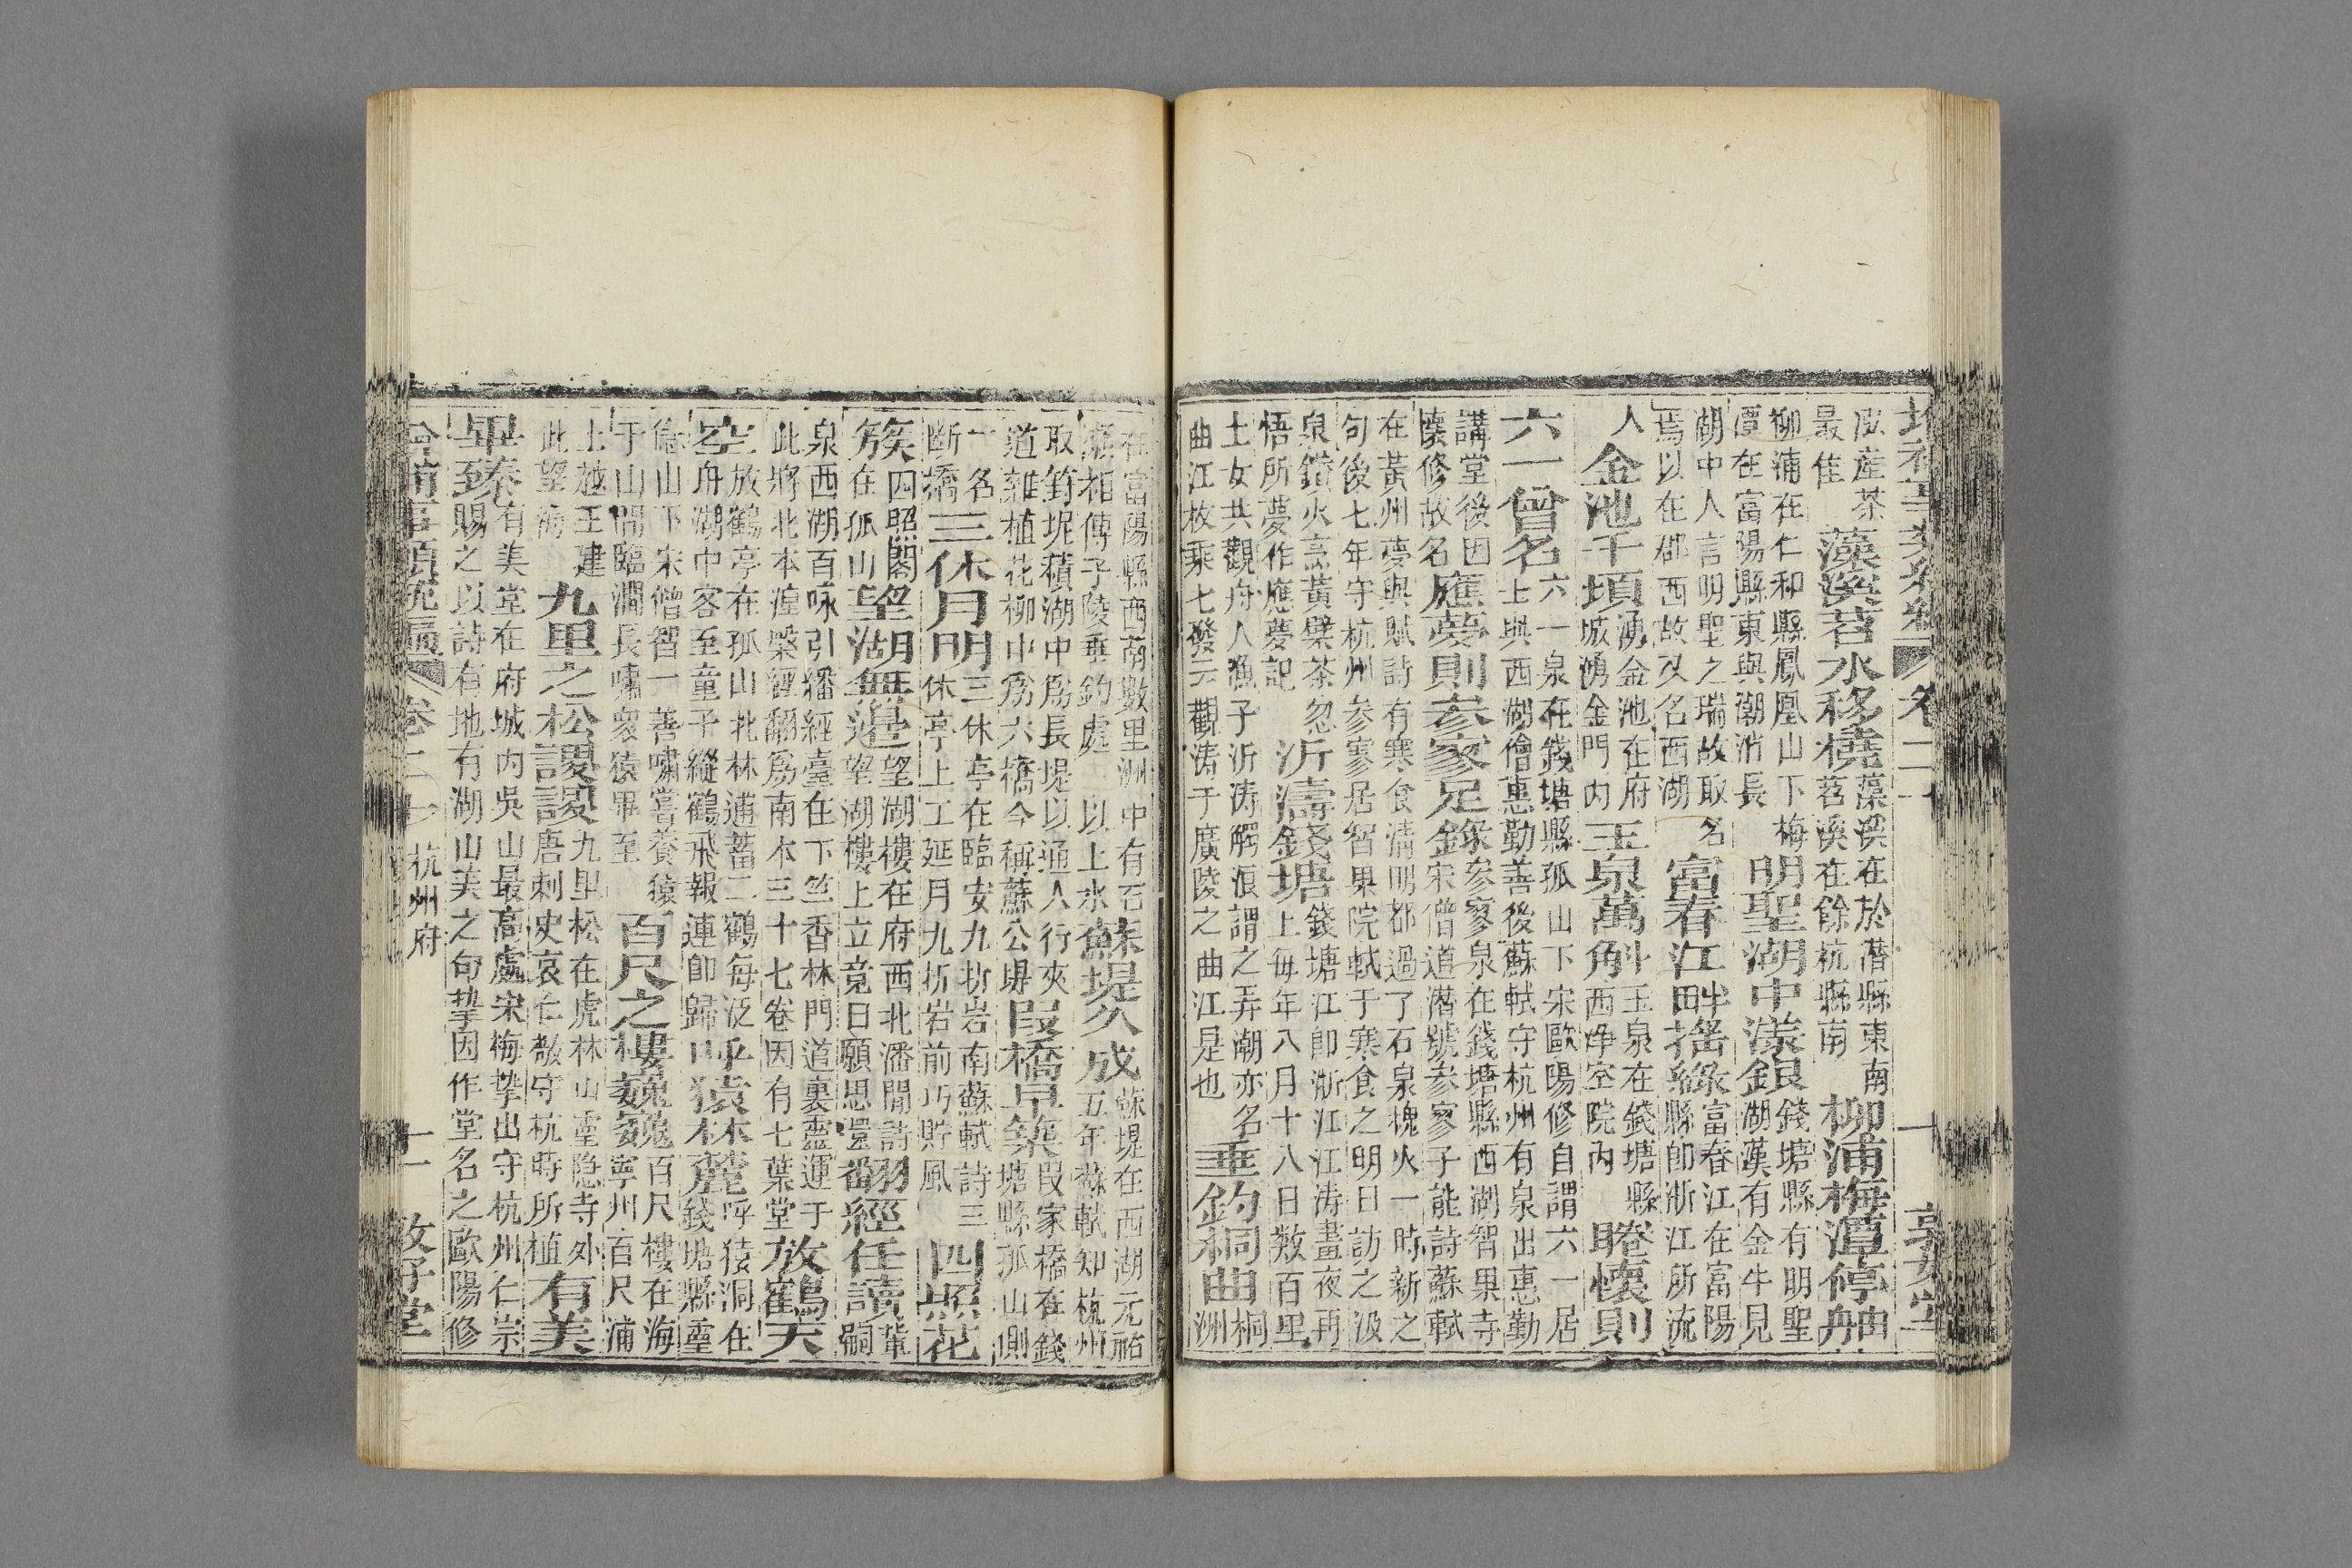 瓜產茶
最佳
藻溪苕水移橈
藻溪在於潛縣東南
苕溪在餘杭縣南
柳浦梅潭停舳
柳浦在仁和縣鳳凰山下梅
潭在富陽縣東與潮消長
明聖湖中漾銀
錢塘縣有明聖
湖漢有金牛見
湖中人言明聖之瑞故取名
焉以在郡西故又名西湖
富春江畔搖綠
富春江在富陽
縣即浙江所流
人
金池千頃
湧金池在府
城湧金門内
玉泉萬斛
玉泉在錢塘縣
西淨空院内
睠懷則
六一曾名
六一泉在錢塘縣孤山下宋歐陽修自謂六一居
士與西湖僧惠勤善後蘇軾守杭州有泉出惠勤
講堂後因
懷修故名
應夢則參寥足錄
參寥泉在錢塘縣西湖智果寺
宋僧道潛號參寥子能詩蘇軾
在黃州夢與賦詩有寒食清明都過了石泉槐火一時新之
句後七年守杭州參寥居智果院軾于寒食之明日訪之汲
泉鑽火烹黃蘗茶忽
悟所夢作應夢記
沂濤錢塘
錢塘江即浙江江涛晝夜再
上每年八月十八日數百里
士女共觀舟人漁子沂涛觸浪謂之弄潮亦名
曲江枚乘七發云觀涛于廣陵之曲江是也
垂釣桐曲
桐
洲
在富陽縣西南數里洲中有石
廟相傳子陵垂釣處 以上水
蘇堤久成
蘇堤在西湖元祐
五年蘇軾知杭州
取葑坭積湖中爲長堤以通人行夾
道雜植花柳中爲六橋今稱蘇公堤
段橋早築
段家橋在錢
塘縣孤山側
一名
斷橋
三休月明
三休亭在臨安九折岩南蘇軾詩三
休亭上工延月九折岩前巧貯風
四照花
簇
四照閣
在孤山
望湖無邊
望湖樓在府西北潘閬詩
望湖樓上立竟日願思還
翻經任讀
輩
嗣
泉西湖百咏引繙經臺在下竺香林門道裏靈運于
此將北本湼槃經翻爲南本三十七卷因有七葉堂
放鶴天
空
放鶴亭在孤山北林逋蓄二鶴每泛
舟湖中客至童子縱鶴飛報逋即歸
呼猿林麓
呼猿洞在
錢塘縣靈
隐山下宋僧智一善嘯嘗養猿
于山間臨澗長嘯衆猿畢至
百尺之樓巍巍
百尺樓在海
寧州百尺浦
上越王建
此望海
九里之松謖謖
九里松在虎林山靈隐寺外
唐刺史袁仁敬守杭時所植
有美
畢臻
有美堂在府城内吳山最高處宋梅摯出守杭州仁宗
賜之以詩有地有湖山美之句摯因作堂名之歐陽修
卷二
杭州府
十一